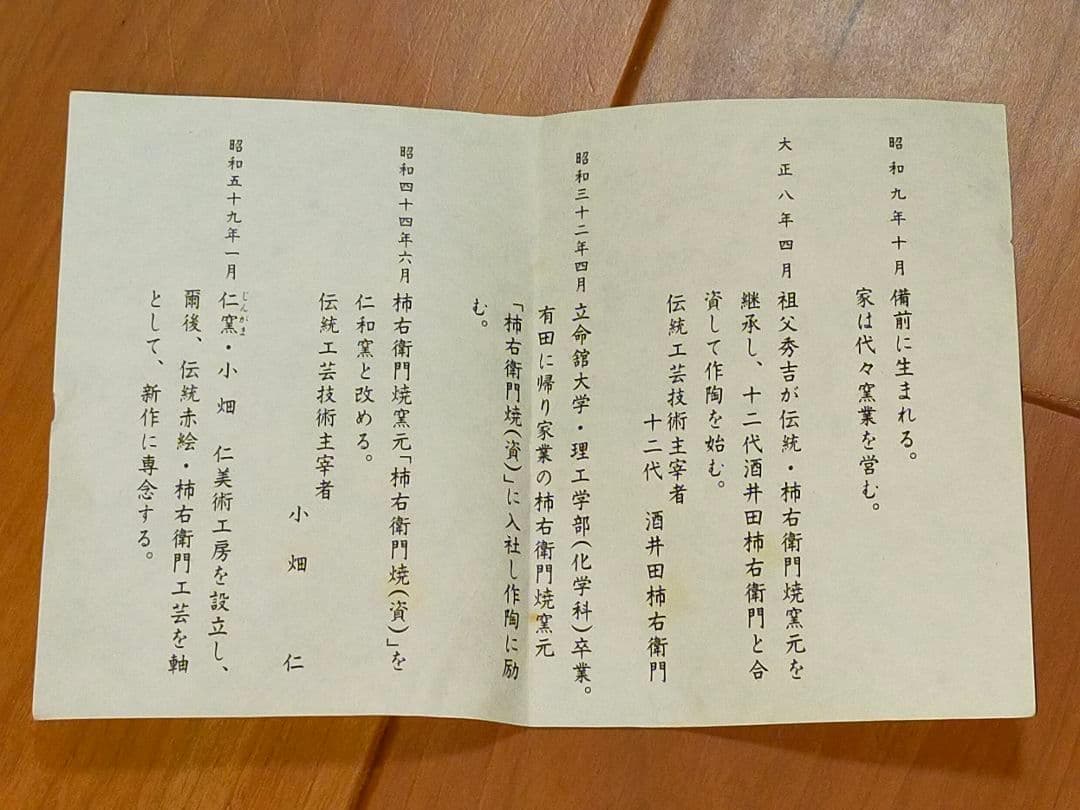 昭和九年十月 備前に生まれる。
家は代々窯業を営む。
大正八年四月 祖父秀吉が伝統・柿右衛門焼窯元を
継承し、十二代酒井田柿右衛門と合
資して作陶を始む。
伝統工芸技術主宰者
十二代 酒井田柿右衛門
昭和三十二年四月 立命舘大学・理工学部(化学科)卒業。
有田に帰り家業の柿右衛門焼窯元
「柿右衛門焼(資)」に入社し作陶に励
む。
昭和四十四年六月 柿右衛門焼窯元「柿右衛門焼(資)」を
仁和窯と改める。
伝統工芸技術主宰者
小畑 仁
昭和五十九年一月 仁窯・小畑 仁美術工房を設立し、
じんがま
爾後、伝統赤絵・柿右衛門工芸を軸
として、新作に専念する。